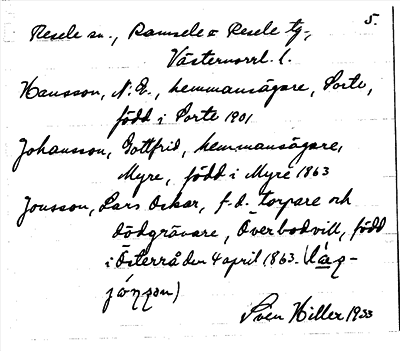 5.
Resele sn., Ramsele o Resele tg.,
Västernorrl. l.
Hansson, N. E., hemmansägare, Sorte,
född i Sorte 1901
Johansson, Gottfrid, hemmansägare,
Myre, född i Myre 1863
Jonsson, Lars Oskar, f.d. torpare och
dödgrävare, Överbodvill, född
i Österrå den 4 april 1863. (lág-
Sven Hiller 1933